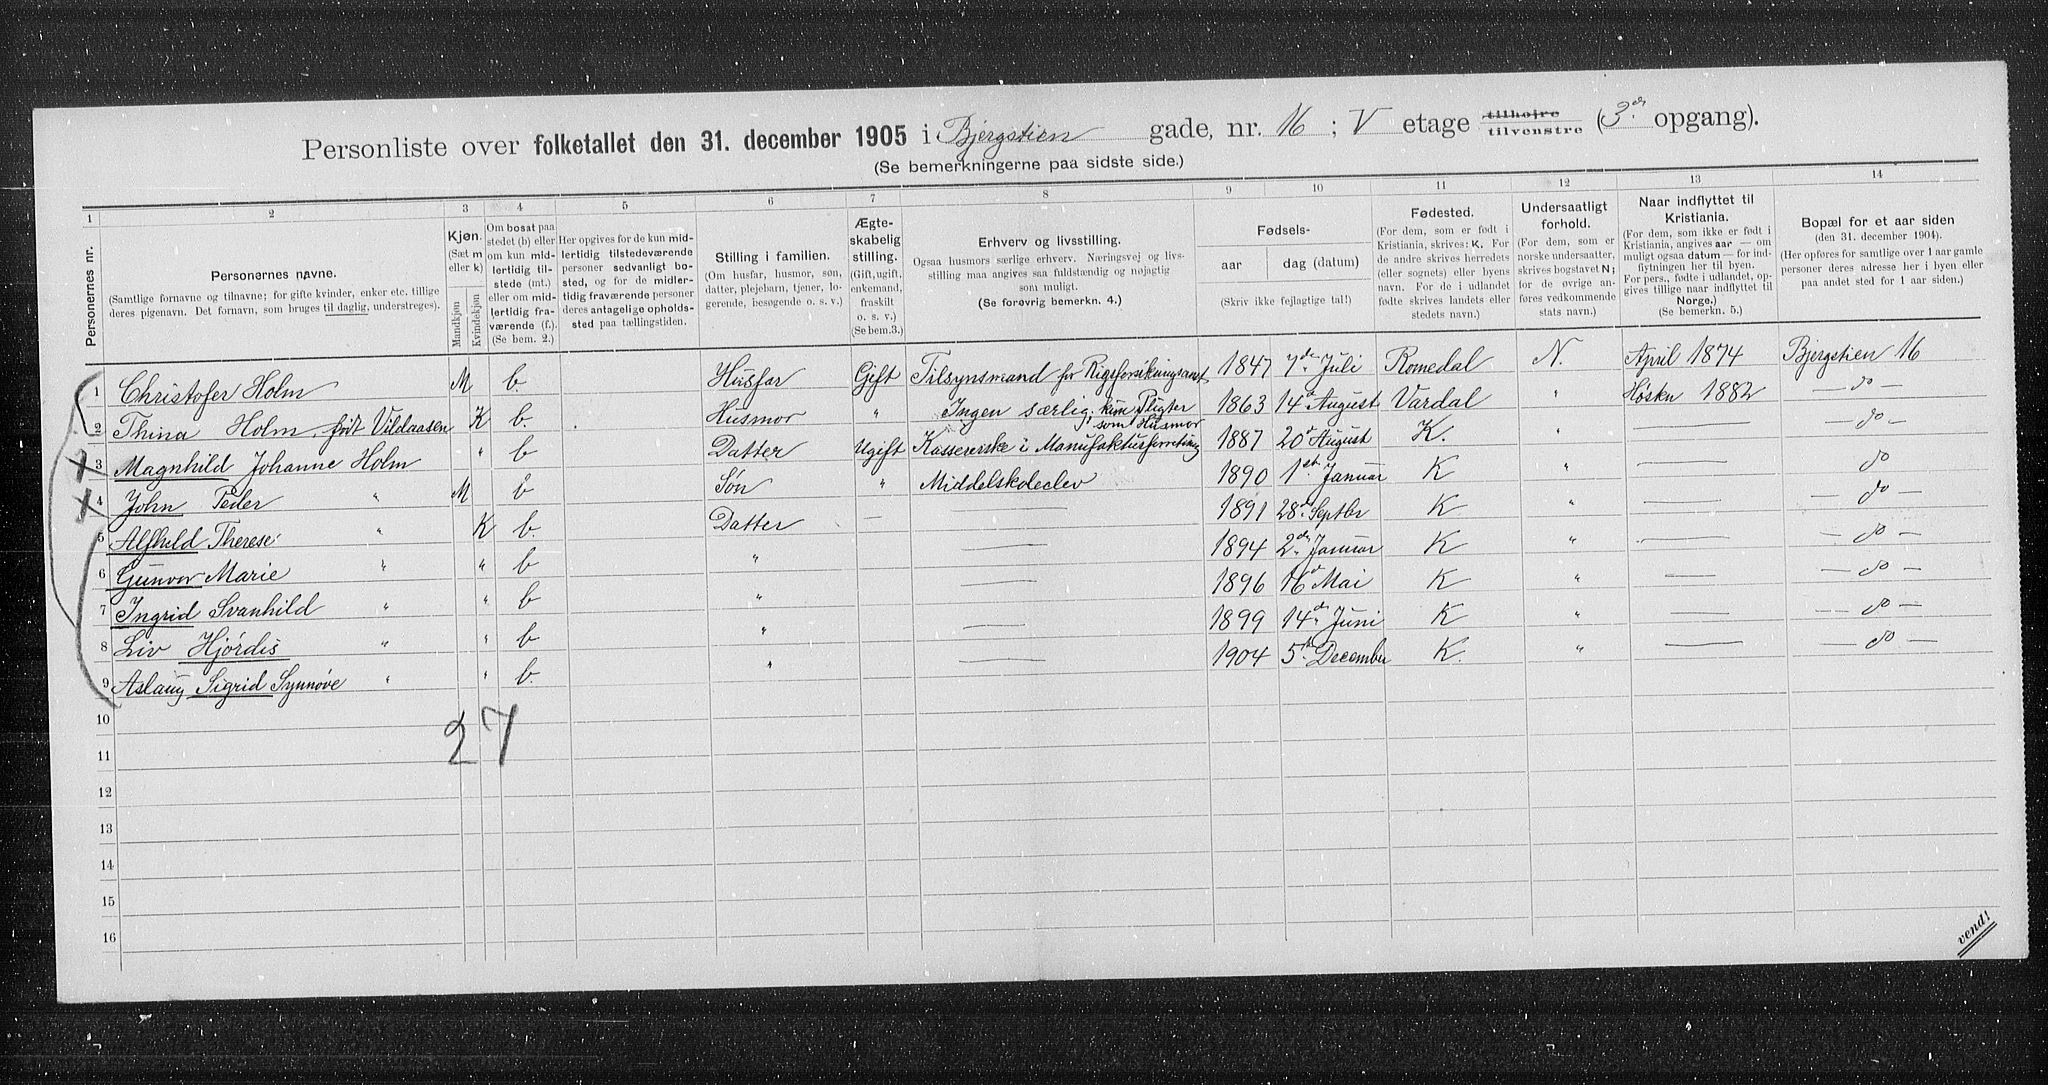 Personliste over folketallet den 31. december 1905 i Bjergstien gade, nr. 16 ; V etage tilhøjre tilvenstre (3die opgang).
(Se bemerkningerne paa sidste side.)
1 2 3 4 5 6 7 8 9 10 11 12 13 14
Personernes nr.
Personernes navne.
(Samtlige fornavne og tilnavne; for gifte kvinder, enker etc. tillige
deres pigenavn. Det fornavn, som bruges til daglig, understreges).
Kjøn.
(Sæt m
eller k)
Mandkjøn
Kvindekjøn
Om bosat paa
stedet (b) eller
om kun mid-
lertidig til-
stede (mt.)
eller om mid-
lertidig fra-
værende (f.)
(Se bem. 2.)
Her opgives for de kun mid-
lertidig tilstedeværende
personer sedvanligt bo-
sted, og for de midler-
tidig fraværende personer
deres antagelige opholds-
sted paa tællingstiden.
Stilling i familien.
(Om husfar, husmor, søn,
datter, plejebarn, tjener, lo-
gerende, besøgende o. s. v.)
Ægte-
skabelig
stilling.
(Gift, ugift,
enkemand,
fraskilt
o. s. v.)
(Se bem.3.)
Erhverv og livsstilling.
Ogsaa husmors særlige erhverv. Næringsvej og livs-
stilling maa angives saa fuldstændig og nøjagtig
som muligt.
(Se forøvrig bemerkn. 4.)
Fødsels-
aar
dag (datum)
(Skriv ikke fejlagtige tal!)
Fødested.
(For dem, som er født i
Kristiania, skrives: K. For
de andre skrives herredets
(eller sognets) eller byens
navn. For de i udlandet
fødte skrives landets eller
stedets navn.)
Undersaatligt
forhold.
(For dem, som er
norske undersaatter,
skrives bogstavet N;
for de øvrige an-
føres vedkommende
stats navn.)
Naar indflyttet til
Kristiania.
(For dem, som ikke er født i
Kristiania, angives aar — om
muligt ogsaa datum — for ind-
flytningen her til byen.
For pers., fødte i udlandet, op-
gives tillige naar indflyttet til
Norge.)
(Se bemerkn. 5.)
Bopæl for et aar siden
(den 31. december 1904).
(Her opføres for samtlige over 1 aar gamle
personer deres adresse her i byen eller
paa andet sted for 1 aar siden.)
1 Christofer Holm M b. Husfar Gift Tilsynsmand for Rigsforsikringsanst 1847 7de Juli Romedal N. April 1874 Bjergstien 16
2 Thina Holm, født Vildaasen K b. Husmor " Ingen særlig, kun Pligter som Husmor 1863 14d August Vardal " Høsten 1882 — do —
3 Magnhild Johanne Holm " b Datter Ugift Kassererske i Manufakturforretning 1887 20d August K. " — do —
4 John Peder " M b Søn " Middelskoleelev 1890 1ste Januar K " do
5 Alfhild Therese " K b. Datter — 1891 28d Septbr K " — do —
6 Gunvor Marie " " b " 1894 2den Januar K " — do —
7 Ingrid Svanhild " " b " 1896 16d Mai K " — do —
8 Liv Hjørdis " " b " 1899 14de Juni K " — do —
9 Aslaug Sigrid Synnøve " " b. " 1904 5te December K. " — do —
10
27
11
12
13
14
15
16
vend!